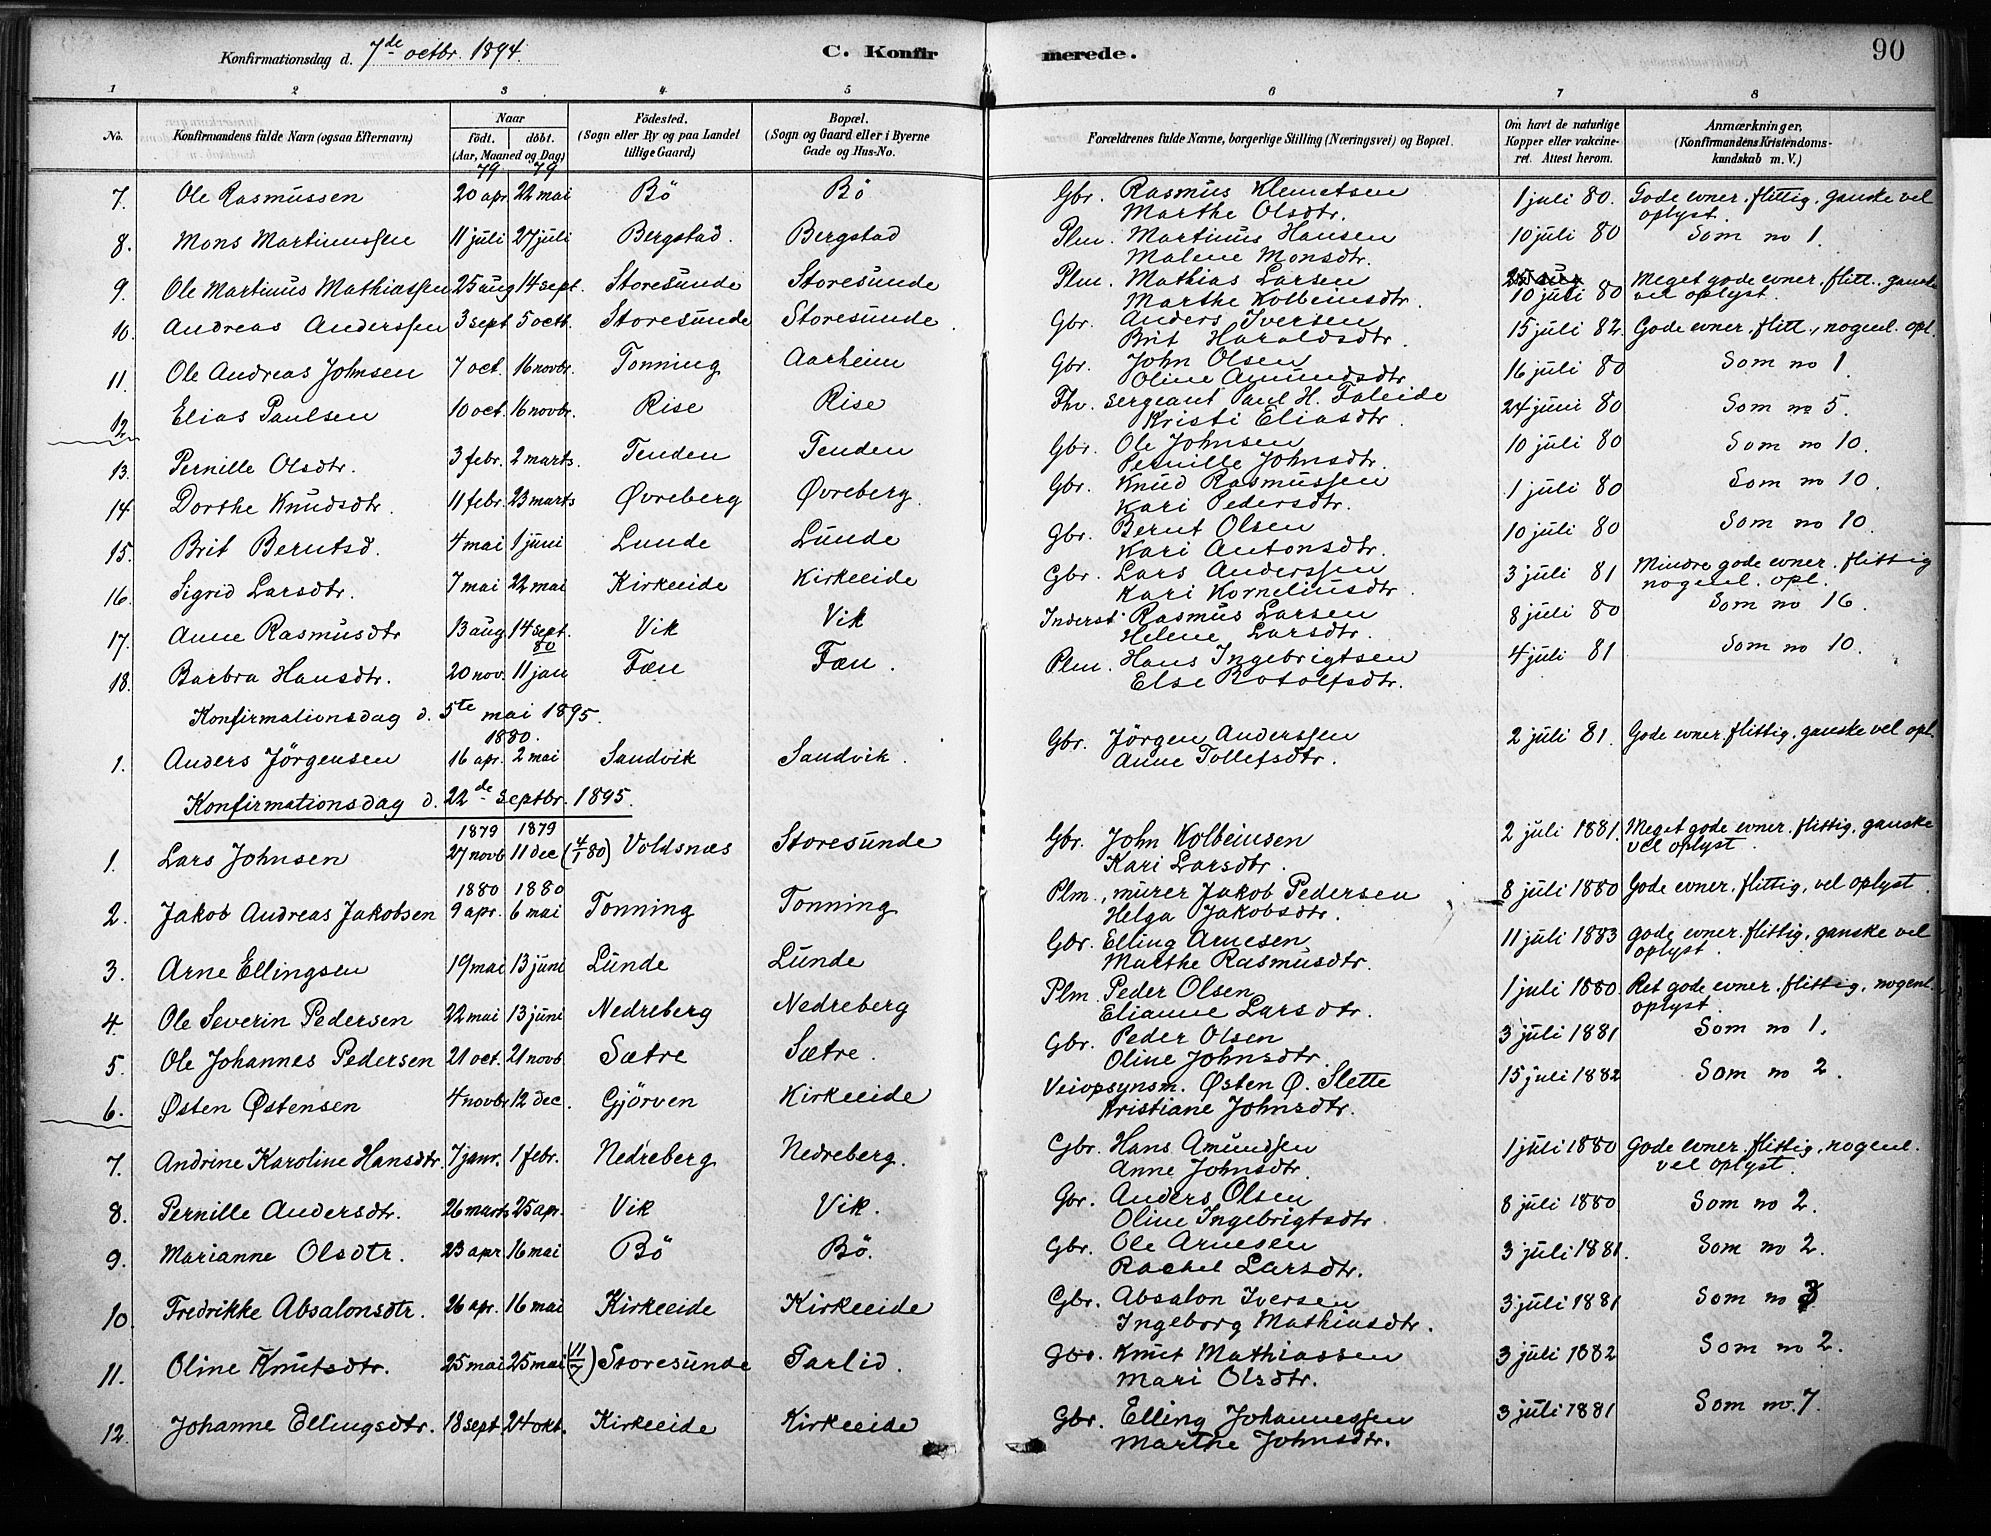 Konfirmationsdag d. 7de octbr. 1894.
C. Konfirmerede.
90
1 2 3 4 5 6 7 8
No. | Konfirmandens fulde Navn (ogsaa Efternavn) | Naar födt. döbt. (Aar, Maaned og Dag) | Födested. (Sogn eller By og paa Landet tillige Gaard) | Bopæl. (Sogn og Gaard eller i Byerne Gade og Hus-No. | Forældrenes fulde Navne, borgerlige Stilling (Næringsvei) og Bopæl. | Om havt de naturlige Kopper eller vakcineret. Attest herom. | Anmærkninger, (Konfirmandens Kristendomskundskab m. V.)
79 79
7. Ole Rasmussen 20 apr 22 mai Bö Bö Gbr. Rasmus Klemetsen 1 juli 80. Gode evner. flittig, ganske vel
Marthe Olsdtr. oplyst.
8. Mons Martinussen 11 juli 27 juli Bergstad. Bergstad Plm. Martinus Hansen 10 juli 80 Som no 1.
Malene Monsdtr.
9. Ole Martinus Mathiassen 25 aug 14 sept. Storesunde Storesunde Plm. Mathias Larsen 10 juli 80 Meget gode evner. flitt., ganske
Marthe Kolbeinsdtr. vel oplyst.
10. Andreas Anderssen 3 sept 5 octb. Storesunde Storesunde. Gbr. Anders Iversen 15 juli 82. Gode evner, flitt., nogenl. opl.
Brit Haraldsdtr.
11. Ole Andreas Johnsen 7 oct. 16 novbr. Tonning Aarheim Gbr. John Olsen 16 juli 80 Som no 1.
Oline Amundsdtr
12. Elias Paulsen 10 oct. 16 novbr. Rise Rise Fhv. sergeant Paul H. Faleide 24 juni 80 Som no 5.
Kristi Eliasdtr.
13. Pernille Olsdtr. 3 febr. 2 marts. Tenden Tenden Gbr. Ole Johnsen 10 juli 80 Som no 10.
Pernille Johnsdtr.
14. Dorthe Knudsdtr. 11 febr. 23 marts Øvreberg Øvreberg. Gbr. Knud Rasmussen 1 juli 80 Som no 10.
Kari Pedersdtr.
15. Brit Berntsd. 4 mai 1 juni Lunde Lunde Gbr. Bernt Olsen 10 juli 80 Som no 10.
Kari Antonsdtr.
16. Sigrid Larsdtr. 7 mai 22 mai Kirkeeide Kirkeeide Gbr. Lars Anderssen 3 juli 81 Mindre gode evner. flittig
Kari Korneliusdtr. nogenl. opl.
17. Anne Rasmusdtr 13 aug 14 sept. Vik Vik Inderst. Rasmus Larsen 8 juli 80 Som no 16.
Helene Larsdtr.
80
18. Barbra Hansdtr. 20 nov. 11 jan Fæn Fæn. Plm. Hans Ingebrigtsen 4 juli 81 Som no 10.
Else Rotolfsdtr.
Konfirmationsdag d. 5te mai 1895.
1880.
1. Anders Jörgensen 16 apr. 2 mai Sandvik Sandvik. Gbr. Jörgen Anderssen 2 juli 81. Gode evner. flittig, ganske vel opl.
Anne Tollefsdtr.
Konfirmationsdag d. 22de septbr. 1895.
1879 1879
1. Lars Johnsen 27 novb 11 dec (4/1 80) Voldsnæs Storesunde Gbr. John Kolbeinsen 2 juli 1881. Meget gode evner. flittig. ganske
Kari Larsdtr. vel oplyst.
1880 1880
2. Jakob Andreas Jakobsen 9 apr. 6 mai Tonning Tonning Plm., murer Jakob Pedersen 8 juli 1880 Gode evner. flittig, vel oplyst.
Helga Jakobsdtr.
3. Arne Ellingsen 19 mai 13 juni Lunde Lunde Gbr. Elling Arnesen 11 juli 1883 gode evner. flittig, ganske vel
Marthe Rasmusdtr. oplyst.
4. Ole Severin Pedersen 22 mai 13 juni Nedreberg Nedreberg Plm. Peder Olsen 1 juli 1880. Ret gode evner. flittig, nogenl.
Elianne Larsdtr. oplyst.
5. Ole Johannes Pedersen 21 oct. 21 novb Sætre Sætre. Gbr. Peder Olsen 3 juli 1881 Som no 1.
Oline Johnsdtr.
6. Østen Østensen 4 novbr 12 dec. Gjörven Kirkeeide Veiopsynsm. Østen Ø. Slette 15 juli 1882 Som no 2.
Kristiane Johnsdtr.
7. Andrine Karoline Hansdtr. 7 janr. 1 febr. Nedreberg Nedreberg. Gbr. Hans Amundsen 1 juli 1880 Gode evner. flittig, nogenl.
Anne Johnsdtr. vel oplyst.
8. Pernille Andersdtr. 26 marts 25 apr. Vik Vik. Gbr. Anders Olsen 8 juli 1880 Som no 2.
Oline Ingebrigtsdtr.
9. Marianne Olsdtr. 23 apr 16 mai Bö Bö. Gbr. Ole Arnesen 3 juli 1881. Som no 2.
Rachel Larsdtr.
10. Fredrikke Absalonsdtr. 26 apr. 16 mai Kirkeeide Kirkeeide Gbr. Absalon Iversen 3 juli 1881 Som no 3
Ingeborg Mathiasdtr.
11. Oline Knutsdtr. 25 mai 25 mai (11/7) Storesunde Tarlid. Gbr. Knut Mathiassen 3 juli 1882 Som no 2.
Mari Olsdtr.
12. Johanne Ellingsdtr. 18 sept 24 okt. Kirkeeide Kirkeeide Gbr. Elling Johannessen 3 juli 1881 Som no. 7.
Marthe Johnsdtr.